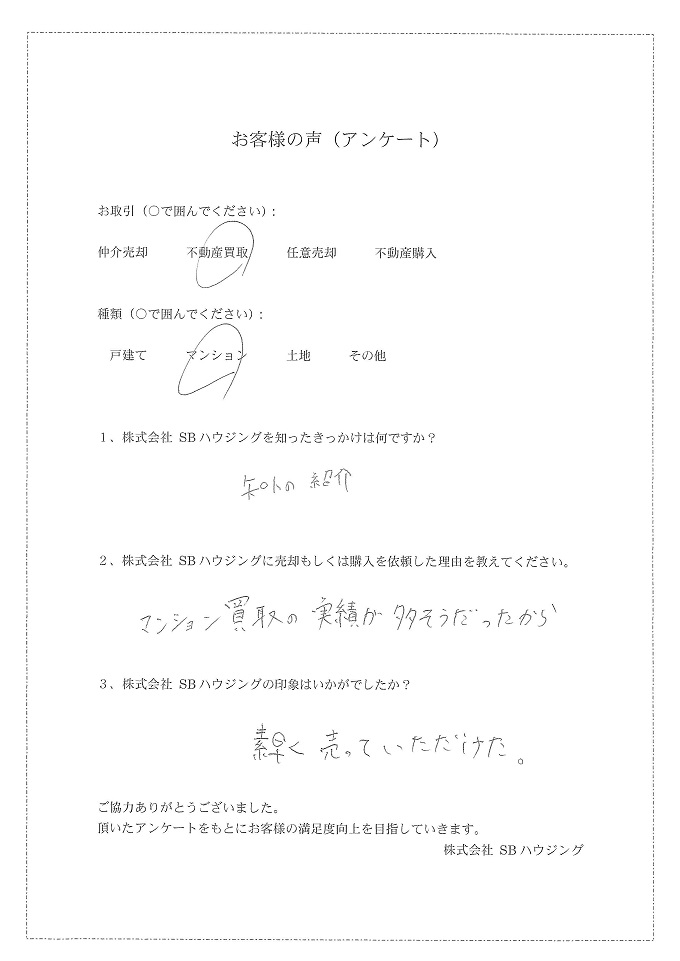 お客様の声（アンケート）
お取引（○で囲んでください）：
仲介売却 不動産買取 任意売却 不動産購入
種類（○で囲んでください）：
戸建て マンション 土地 その他
１、株式会社 SBハウジングを知ったきっかけは何ですか？
知人の紹介
２、株式会社 SBハウジングに売却もしくは購入を依頼した理由を教えてください。
マンション買取の実績が多そうだったから
３、株式会社 SBハウジングの印象はいかがでしたか？
素早く売っていただけた。
ご協力ありがとうございました。
頂いたアンケートをもとにお客様の満足度向上を目指していきます。
株式会社 SBハウジング